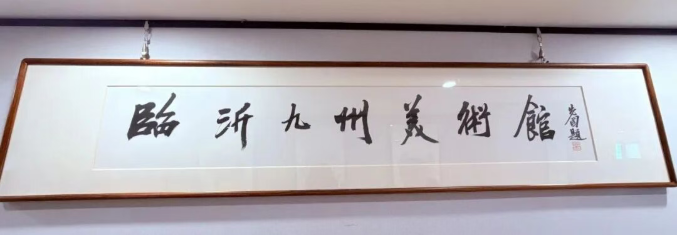 臨沂九州美術館